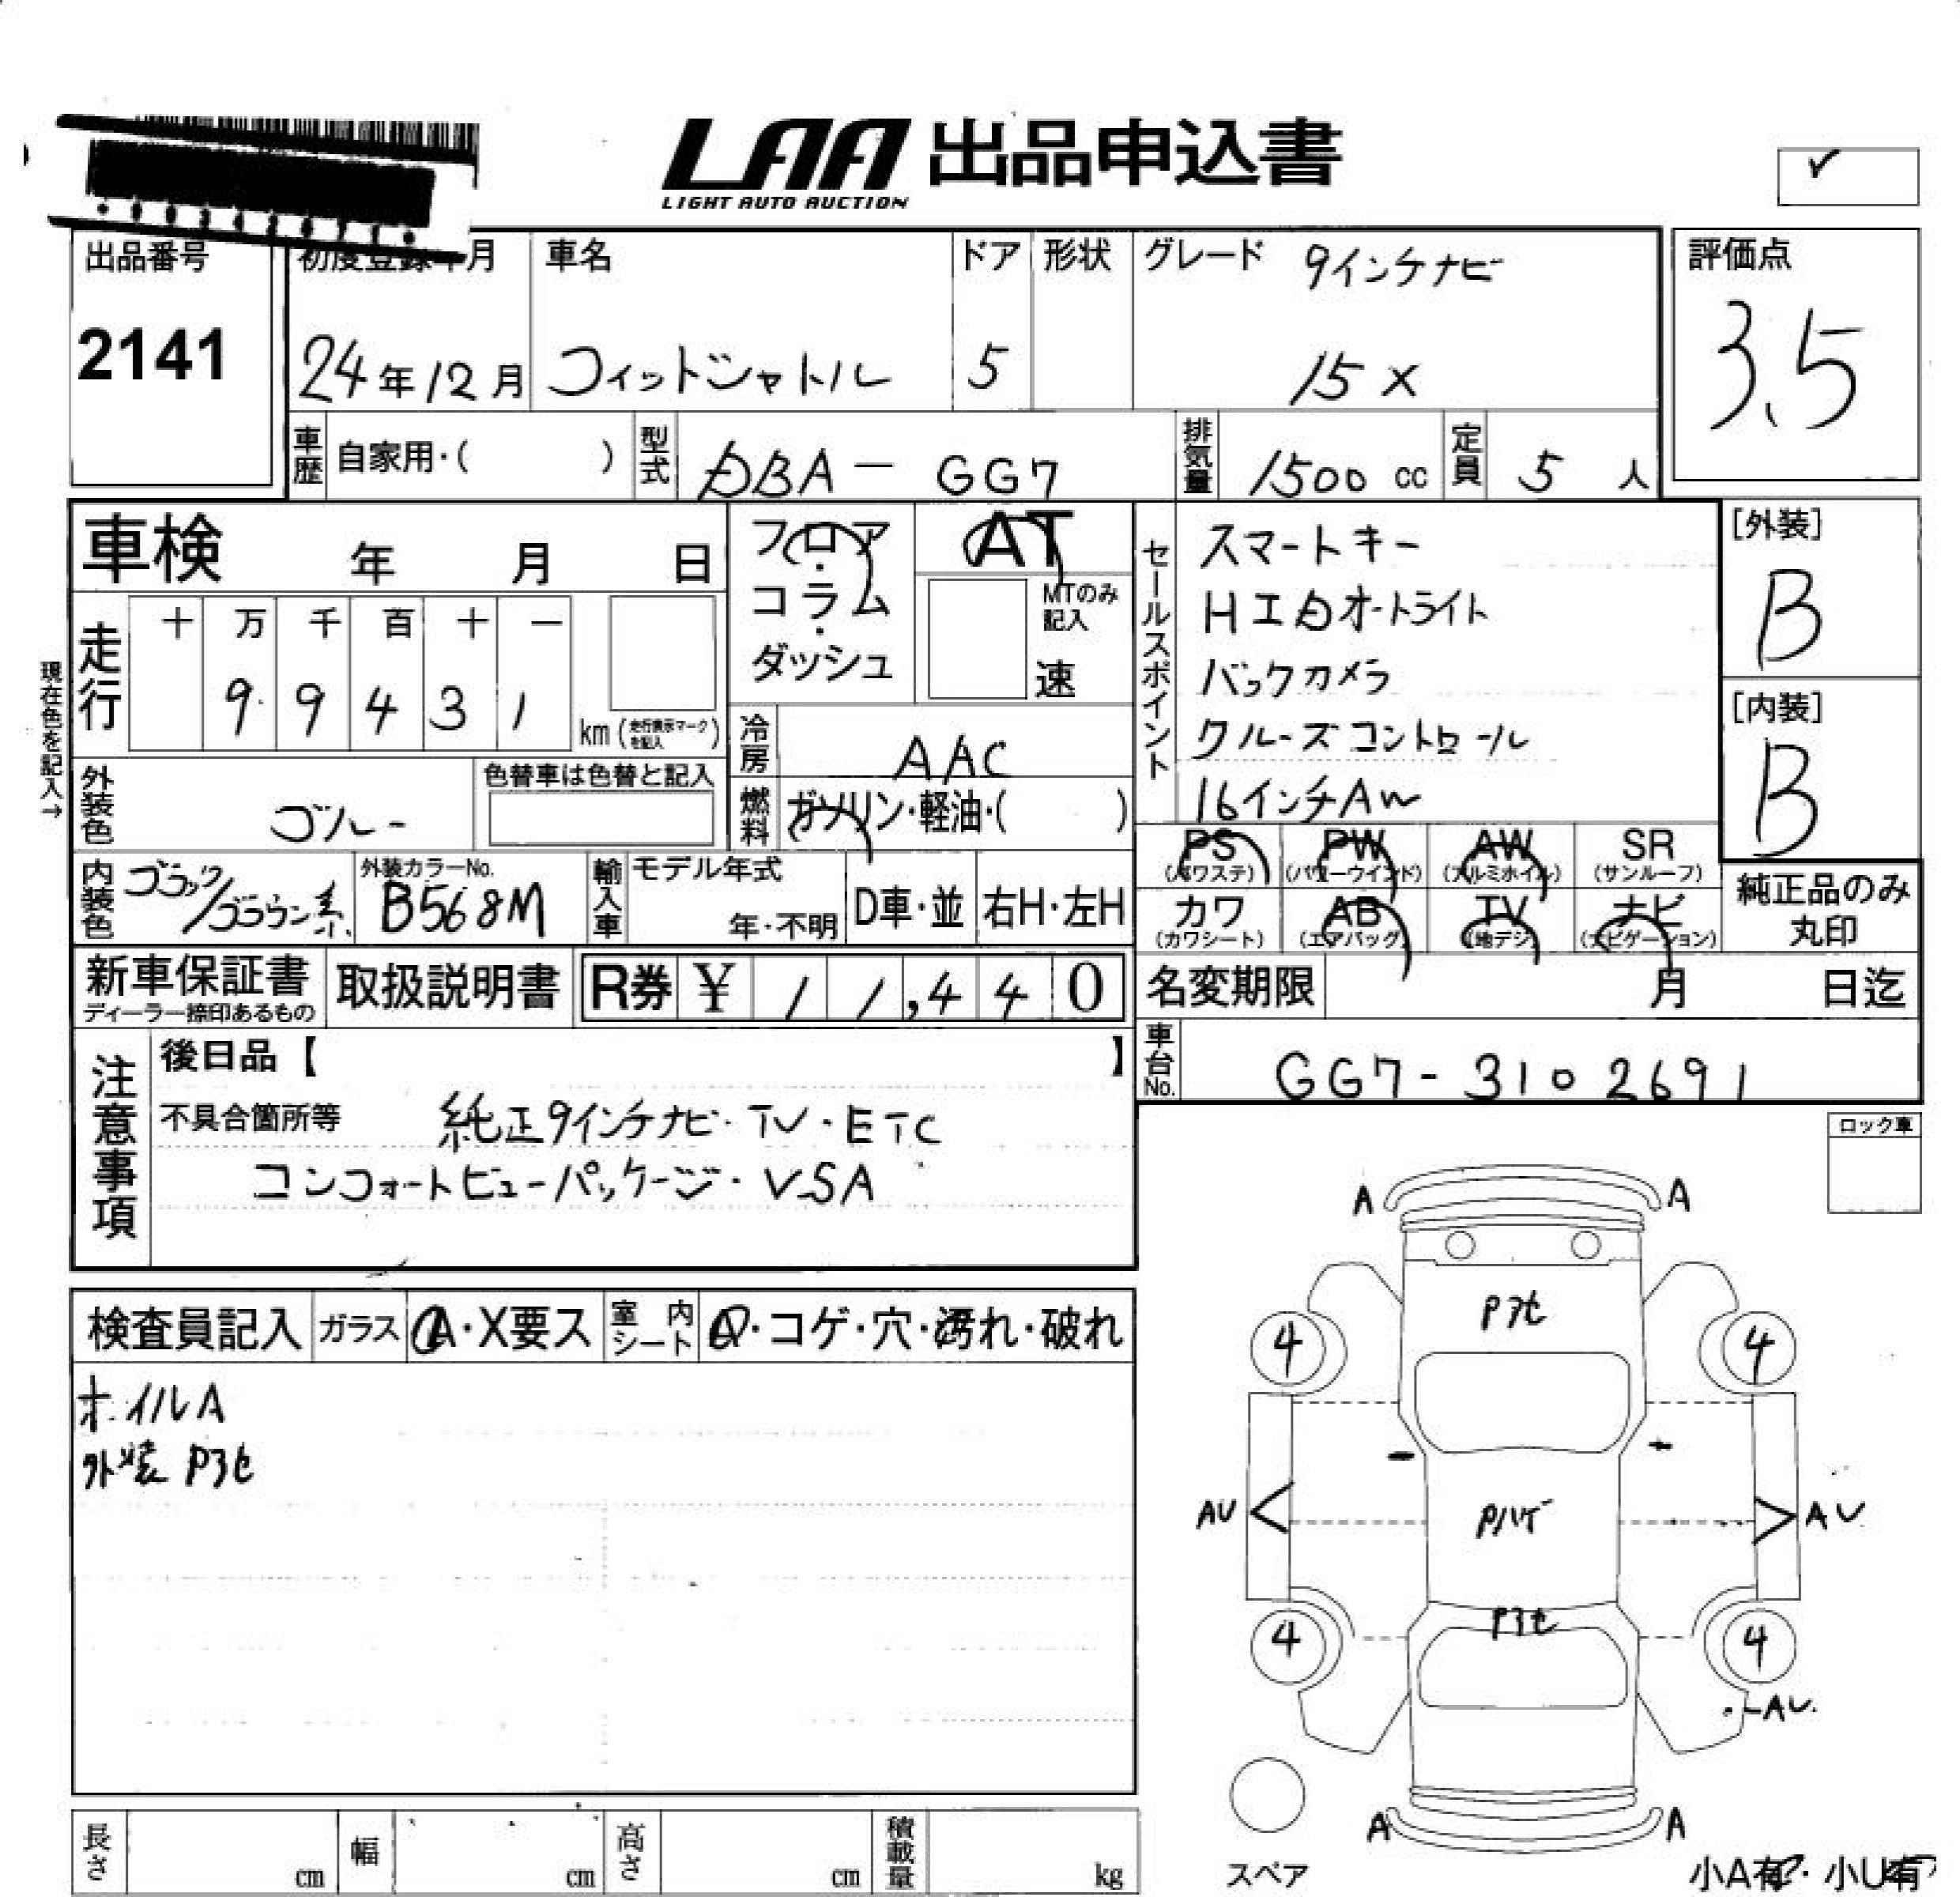 LAA 出品申込書
LIGHT AUTO AUCTION
✓
出品番号 初度登録年月 車名 ドア 形状 グレード 9インチナビ 評価点
2141 24年12月 フィットシャトル 5 15X 3.5
車歴 自家用・( ) 型式 DBA-GG7 排気量 1500 cc 定員 5 人
車検 年 月 日
フロア・コラム・ダッシュ
AT
MTのみ記入
速
セールスポイント
スマートキー
HIDオートライト
バックカメラ
クルーズコントロール
16インチAW
[外装]
B
[内装]
B
現在色を記入→
走行 十 万 千 百 十 一
9 9 4 3 1 km (走行表示マークを記入)
冷房 AAC
外装色 ブルー 色替車は色替と記入
燃料 ガソリン・軽油・( )
PS (パワステ) PW (パワーウインド) AW (アルミホイル) SR (サンルーフ)
カワ (カワシート) AB (エアバッグ) TV (地デジ) ナビ (ナビゲーション)
純正品のみ丸印
内装色 ブラック/ブラウン系 外装カラーNo. B568M 輸入車 モデル年式 年・不明 D車・並 右H・左H
新車保証書 ディーラー捺印あるもの 取扱説明書 R券 ¥ 11,440
名変期限 月 日迄
車台No. GG7-3102691
注意事項
後日品【 】
不具合箇所等 純正9インチナビ・TV・ETC
コンフォートビューパッケージ・VSA
ロック車
検査員記入 ガラス A・X要ス 室内シート コゲ・穴・汚れ・破れ
ホイルA
外装 Pヨセ
A A
Pヨセ
4 4
AU Pハゲ AU
Pヨセ
4 4
AU
A A
スペア
小A有・小U有
長さ cm 幅 cm 高さ cm 積載量 kg